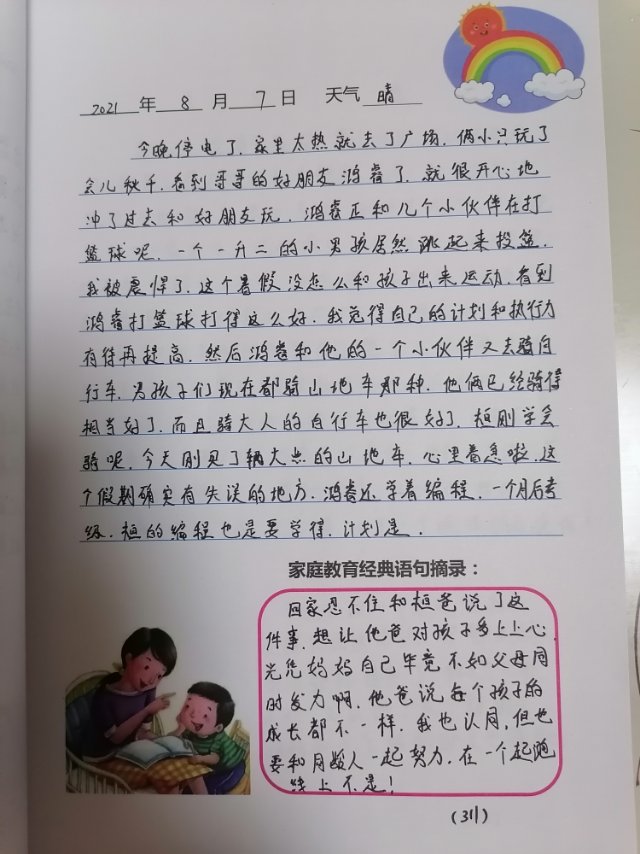 2021 年 8 月 7 日 天气 晴
今晚停电了，家里太热就去了广场，俩小只玩了
会儿秋千，看到哥哥的好朋友鸿睿了，就很开心地
冲了过去和好朋友玩，鸿睿正和几个小伙伴在打
篮球呢，一个一升二的小男孩居然跳起来投篮，
我被震惊了，这个暑假没怎么和孩子出来运动，看到
鸿睿打篮球打得这么好，我觉得自己的计划和执行力
有待再提高，然后鸿睿和他的一个小伙伴又去骑自
行车，男孩子们现在都骑山地车那种，他俩已经骑得
相当好了，而且骑大人的自行车也很好了，桓刚学会
骑呢，今天刚见了辆大点的山地车，心里着急啦，这
个假期确实有失误的地方，鸿睿还学着编程，一个月后考
级，桓的编程也是要学得，计划是．
家庭教育经典语句摘录：
回家忍不住和桓爸说了这
件事，想让他爸对孩子多上上心，
光凭妈妈自己毕竟不如父母同
时发力啊，他爸说每个孩子的
成长都不一样，我也认同，但也
要和同龄人一起努力，在一个起跑
线上不是！
(311)